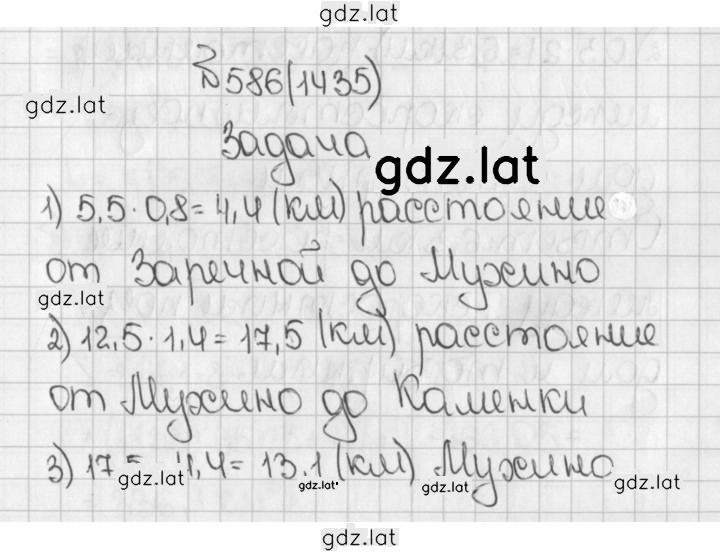 gdz.lat
№586(1435)
gdz.lat
Задача
gdz.lat
1) 5,5·0,8=4,4(км) расстояние
от Заречной до Мухино
gdz.lat
2) 12,5·1,4=17,5 (км) расстояние
от Мухино до Каменки
3) 17 4,4=13.1(км) Мухино
gdz.lat gdz.lat gdz.lat gdz.lat
gdz.lat